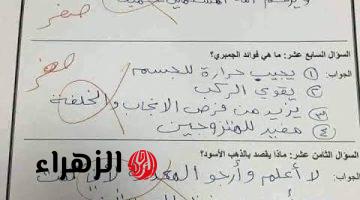 صفر
السؤال السابع عشر: ما هي فوائد الجمبري؟
الجواب: ① يجيب حرارة للجسم
صفر
② يقوي الركب
③ يزيد من فرص الانجاب والخلفة
④ مفيد للمتزوجين
السؤال الثامن عشر: ماذا يقصد بالذهب الأسود؟
الجواب: لا أعلم وأرجو
الزهراء